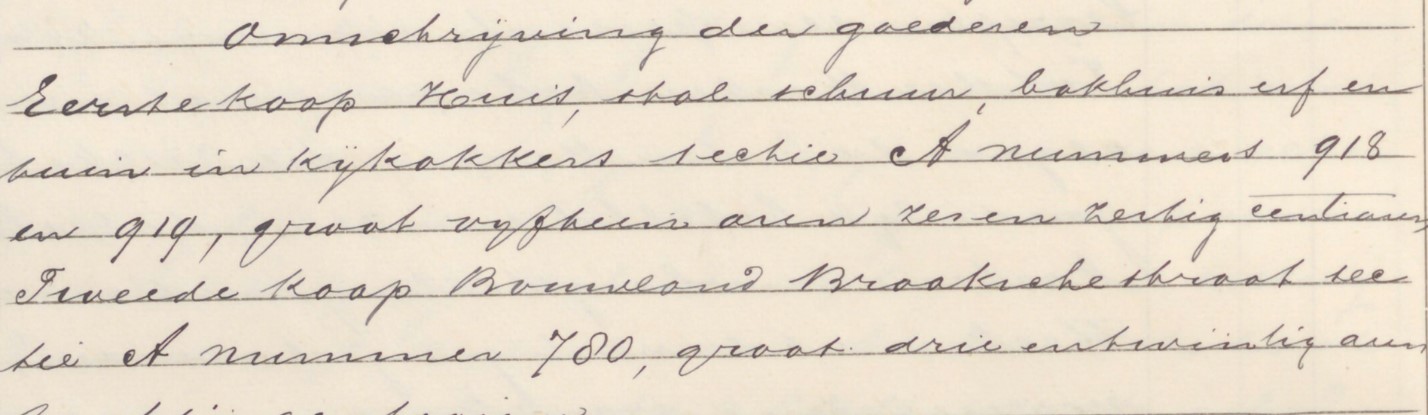 Omschrijving der goederen
Eerste koop Huis, stal schuur, bakhuis erf en
tuin in Kijkakkers sectie A nummers 918
en 919, groot vyftien aren zes en zestig centiaren
Tweede koop Bouwland Braakschestraat sec
tie A nummer 780, groot drie entwintig aren